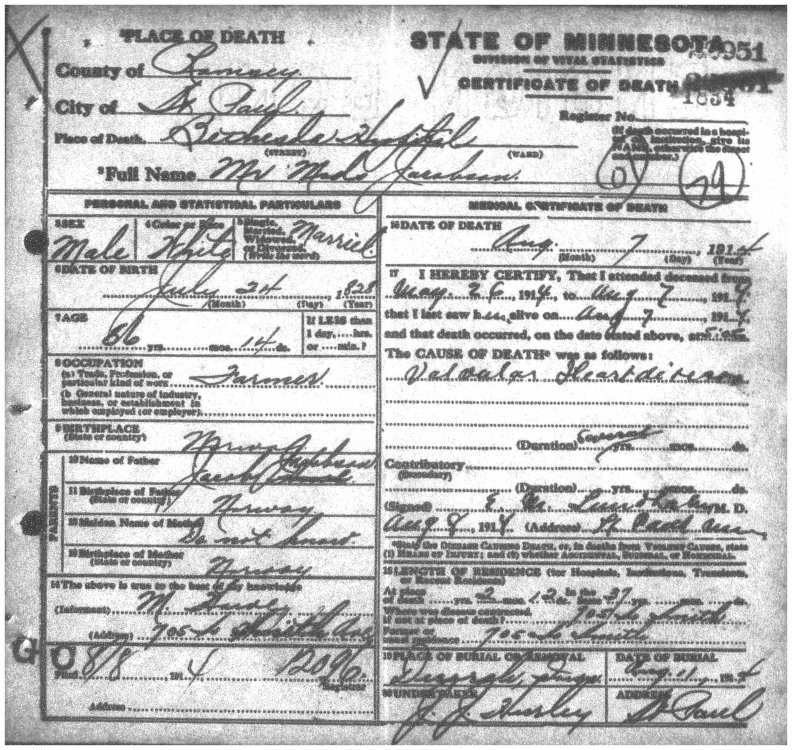 PLACE OF DEATH
County of Ramsey
City of St Paul
Place of Death. Hospital
(STREET) (WARD)
Full Name Mr Mads Jacobson.
STATE OF MINNESOTA
DIVISION OF VITAL STATISTICS
CERTIFICATE OF DEATH
Register No.
(If death occurred in a hospi-
PERSONAL AND STATISTICAL PARTICULARS
3 SEX
Male
4 Color or Race
White
5 Single,
Married,
Widowed,
or Divorced.
(Write the word)
Married
6 DATE OF BIRTH
July 24, 1828
(Month) (Day) (Year)
7 AGE
86 yrs. mos. 14 ds.
If LESS than
1 day, hrs.
or min.?
8 OCCUPATION
(a) Trade, Profession, or
particular kind of work Farmer
(b) General nature of industry,
business, or establishment in
which employed (or employer)
9 BIRTHPLACE
(State or country) Norway
PARENTS
10 Name of Father Jacob
11 Birthplace of Father
(State or country) Norway
12 Maiden Name of Mother Do not know
13 Birthplace of Mother
(State or country) Norway
14 The above is true to the best of my knowledge
(Informant) M
(Address) 705
GO
Filed 8/8 1914 12096
Registrar
Address
MEDICAL CERTIFICATE OF DEATH
16 DATE OF DEATH
Aug. 7 1914
(Month) (Day) (Year)
17 I HEREBY CERTIFY, That I attended deceased from
May 26, 1914, to Aug 7, 191
that I last saw him alive on Aug 7, 191
and that death occurred, on the date stated above, at
The CAUSE OF DEATH* was as follows:
Valvular Heart disease
(Duration) Several yrs. mos. ds.
Contributory
(Secondary)
(Duration) yrs. mos. ds.
(Signed) E. M. M. D.
Aug 8, 1914 (Address) St Paul Minn
*State the DISEASE CAUSING DEATH, or, in deaths from VIOLENT CAUSES, state
(1) MEANS OF INJURY; and (2) whether ACCIDENTAL, SUICIDAL, or HOMICIDAL.
18 LENGTH OF RESIDENCE (for Hospitals, Institutions, Transients,
or Recent Residents)
At place
of death yrs. 2 mos. 12 ds. In the 37 yrs. mos. ds.
Where was disease contracted,
if not at place of death? 705 So Smith
Former or
705 So Smith
19 PLACE OF BURIAL OR REMOVAL
Decorah, Iowa
DATE OF BURIAL
20 UNDERTAKER
J. J. Hurley
ADDRESS
St Paul